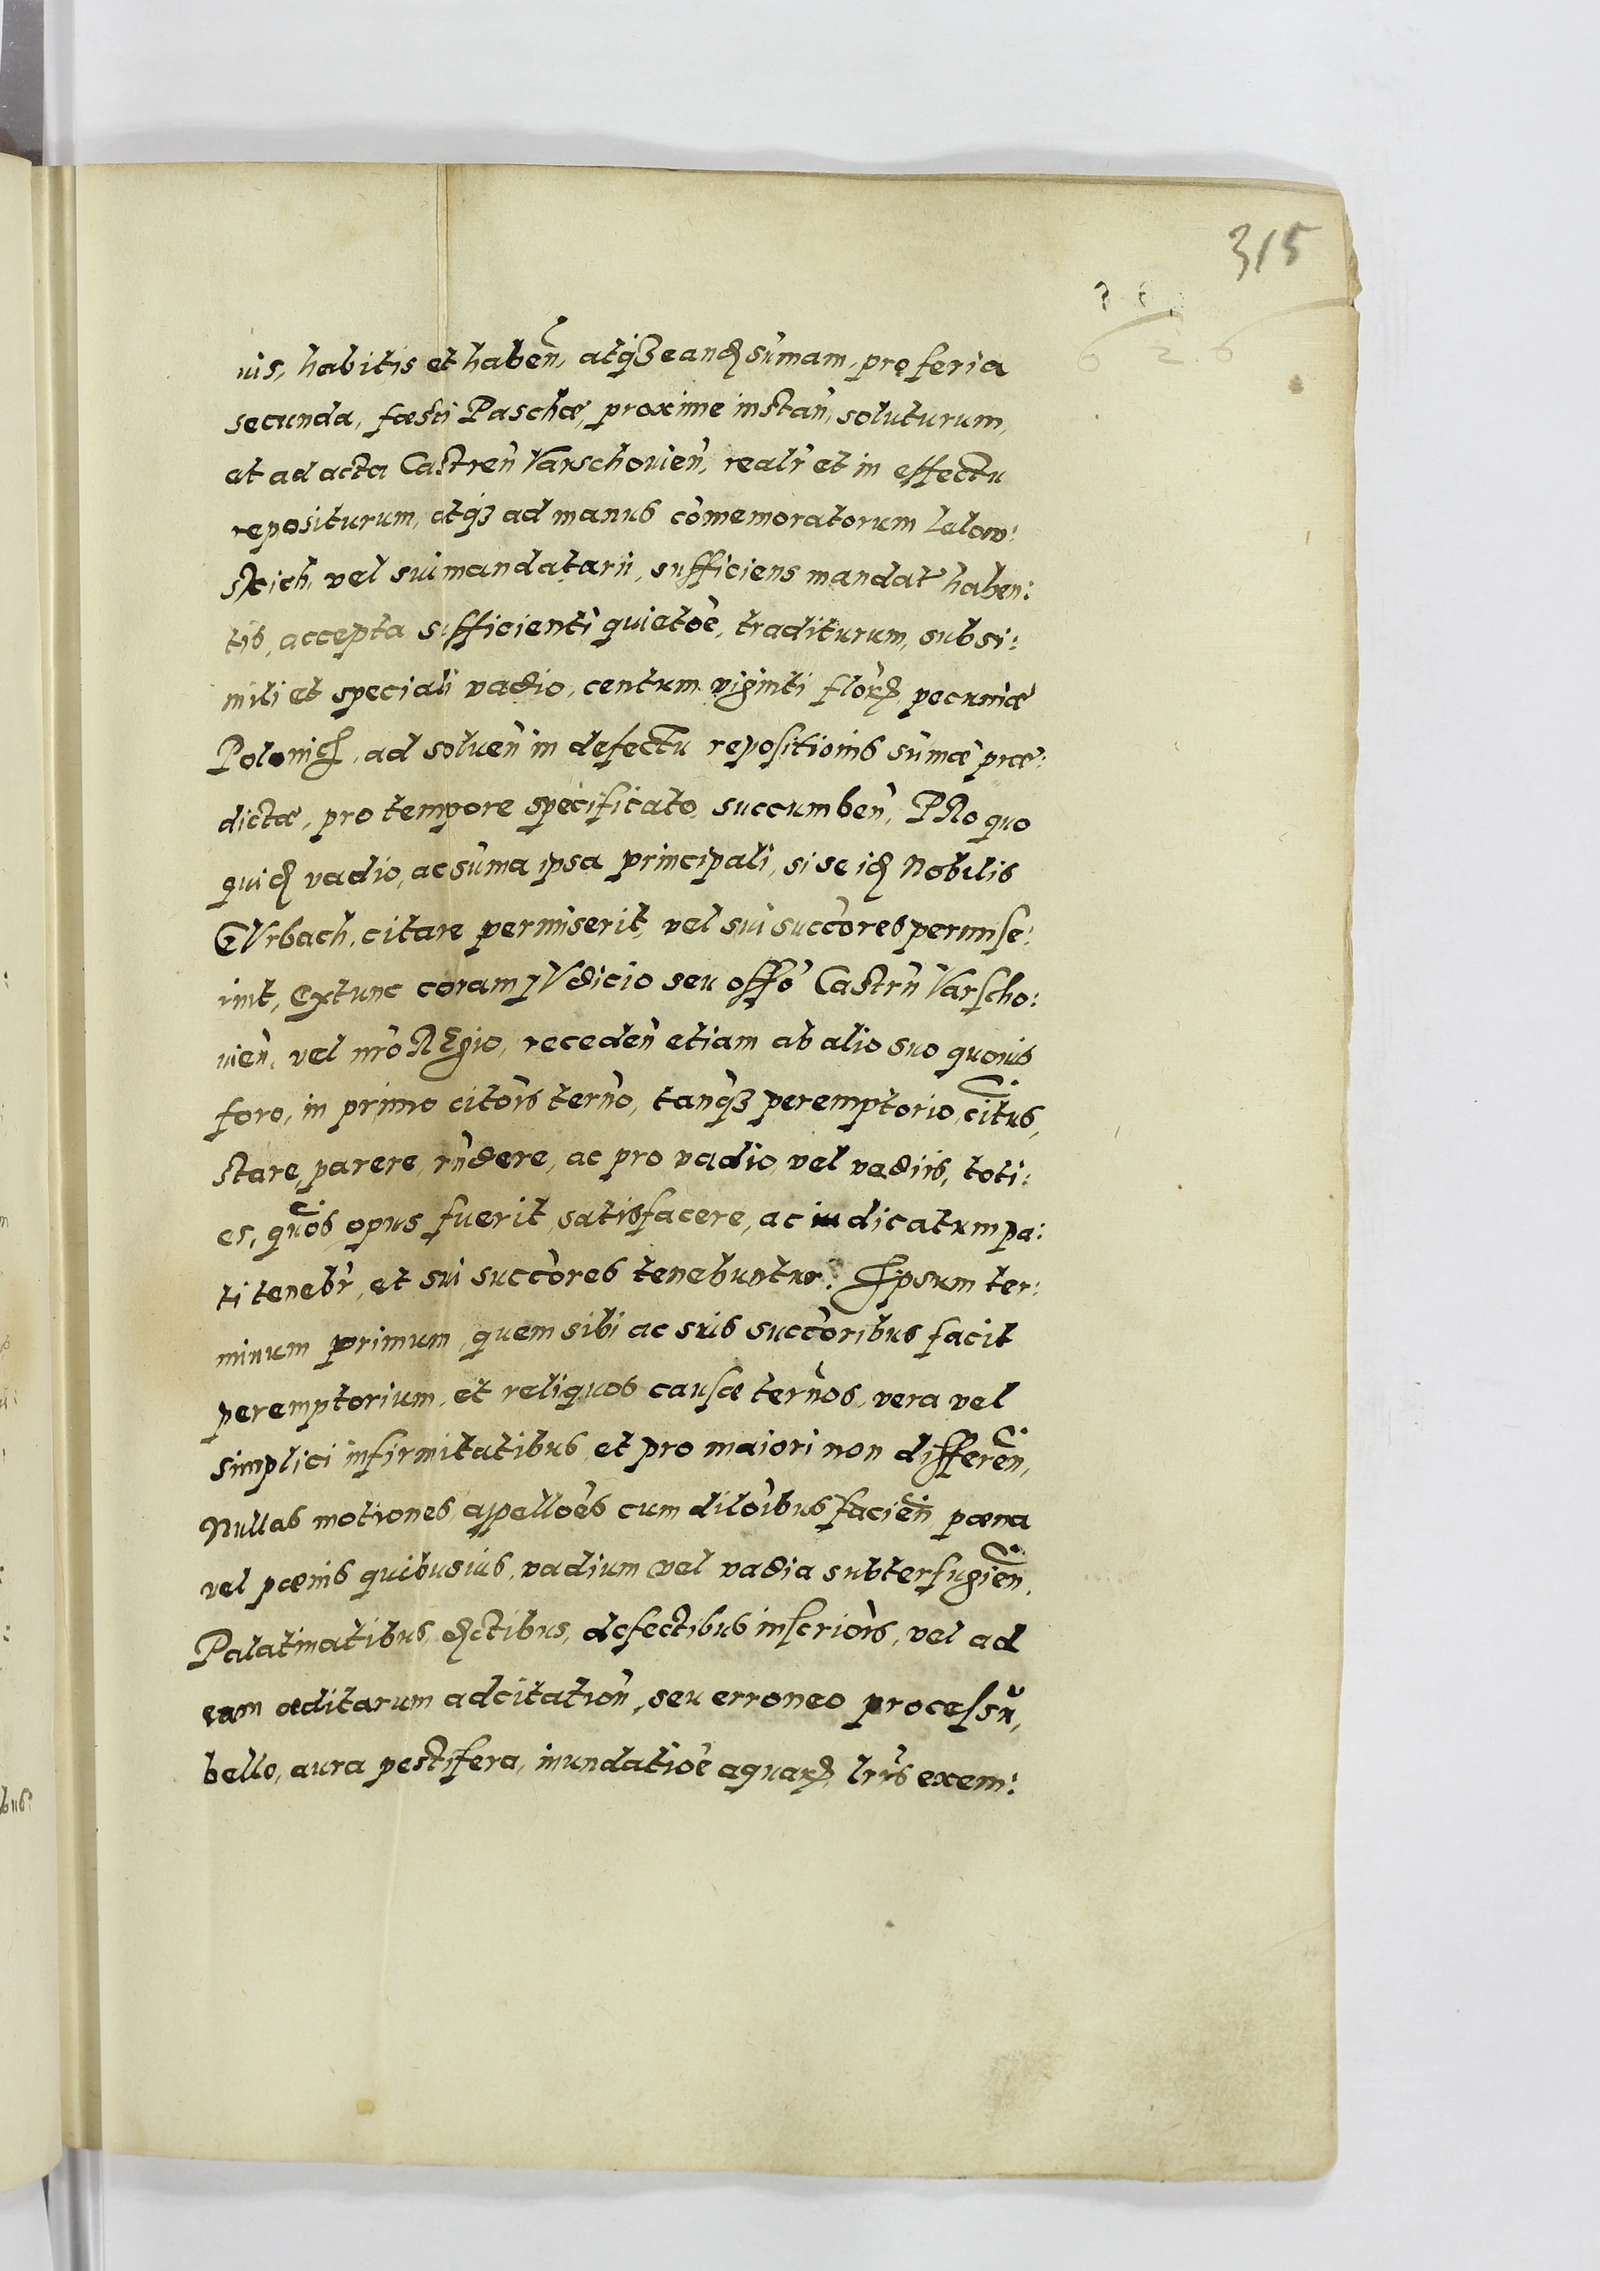 315
6 2. 6
uis, habitis et haben̄, atqꝫ eandꝫ sum̄am, pro feria
secunda, fæsti Paschæ, proxime instan̄, soluturum,
et ad acta Castren̄ Varschouien̄, realr̄ et in effectu
repositurum, atqꝫ ad manus com̄emoratorum Lelow:
skich, vel sui mandatarii, sufficiens mandat̄ haben:
tis, accepta sufficienti quietōe, traditurum, sub si:
mili et speciali vadio, centum viginti flor̄ꝝ pecuniæ
Polonic̄, ad soluen̄ in defectu repositionis sum̄æ præ:
dictæ, pro tempore specificato, succumben̄, PRo quo
quidꝫ vadio, ac sum̄a ipsa principali, si se idꝫ Nobilis
EVrbach, citare permiserit, vel sui succ̄ores permise:
rint, Extunc coram IVdicio seu off̄o Castrn̄ Varscho:
uien̄, vel nr̄o REgio, receden̄ etiam ab alio suo quouis
foro, in primo citōis tern̄o, tanqꝫ peremptorio, cit̄us,
stare, parere, rn̄dere, ac pro vadio, vel vadiis, toti:
es, quōs opus fuerit, satisfacere, ac iudicatum pa:
ti tenebr̄, et sui succ̄ores tenebuntur. Ipsum ter:
minum primum, quem sibi ac suis succ̄oribus facit
peremptorium, et reliquos causæ tern̄os, vera vel
simplici infirmitatibus, et pro maiori non differen̄,
Nullas motiones, appellōes cum dilōibus facien̄ pœna
vel pœnis quibusuis, vadium vel vadia subterfugien̄,
Palatinatibus, dꝫctibus, defectibus inscriōis, vel ad
eam æditarum adcitation̄, seu erroneo processu,
bello, aura pestifera, inundatiōe aquaꝝ, lr̄is exem: